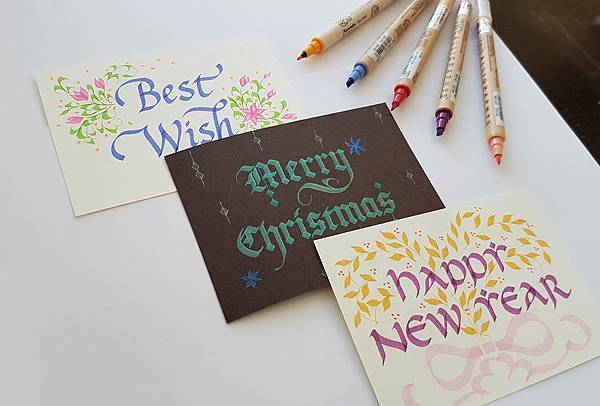 Best
Wish
Merry
Christmas
HAPPY
NEW YEAR